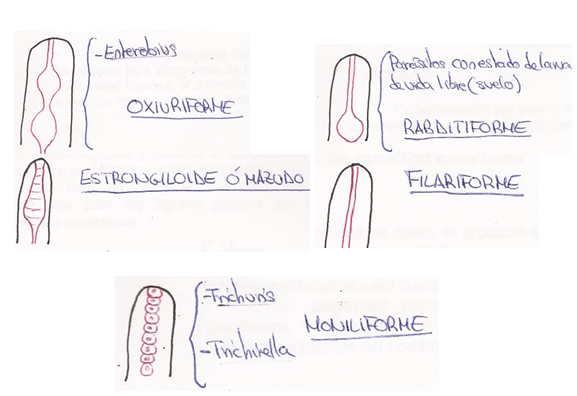 - Enterobius
OXIURIFORME
Parásitos con estado de larva
de vida libre (suelo)
RABDITIFORME
ESTRONGILOIDE Ó MAZUDO
FILARIFORME
- Trichuris
MONILIFORME
- Trichirella